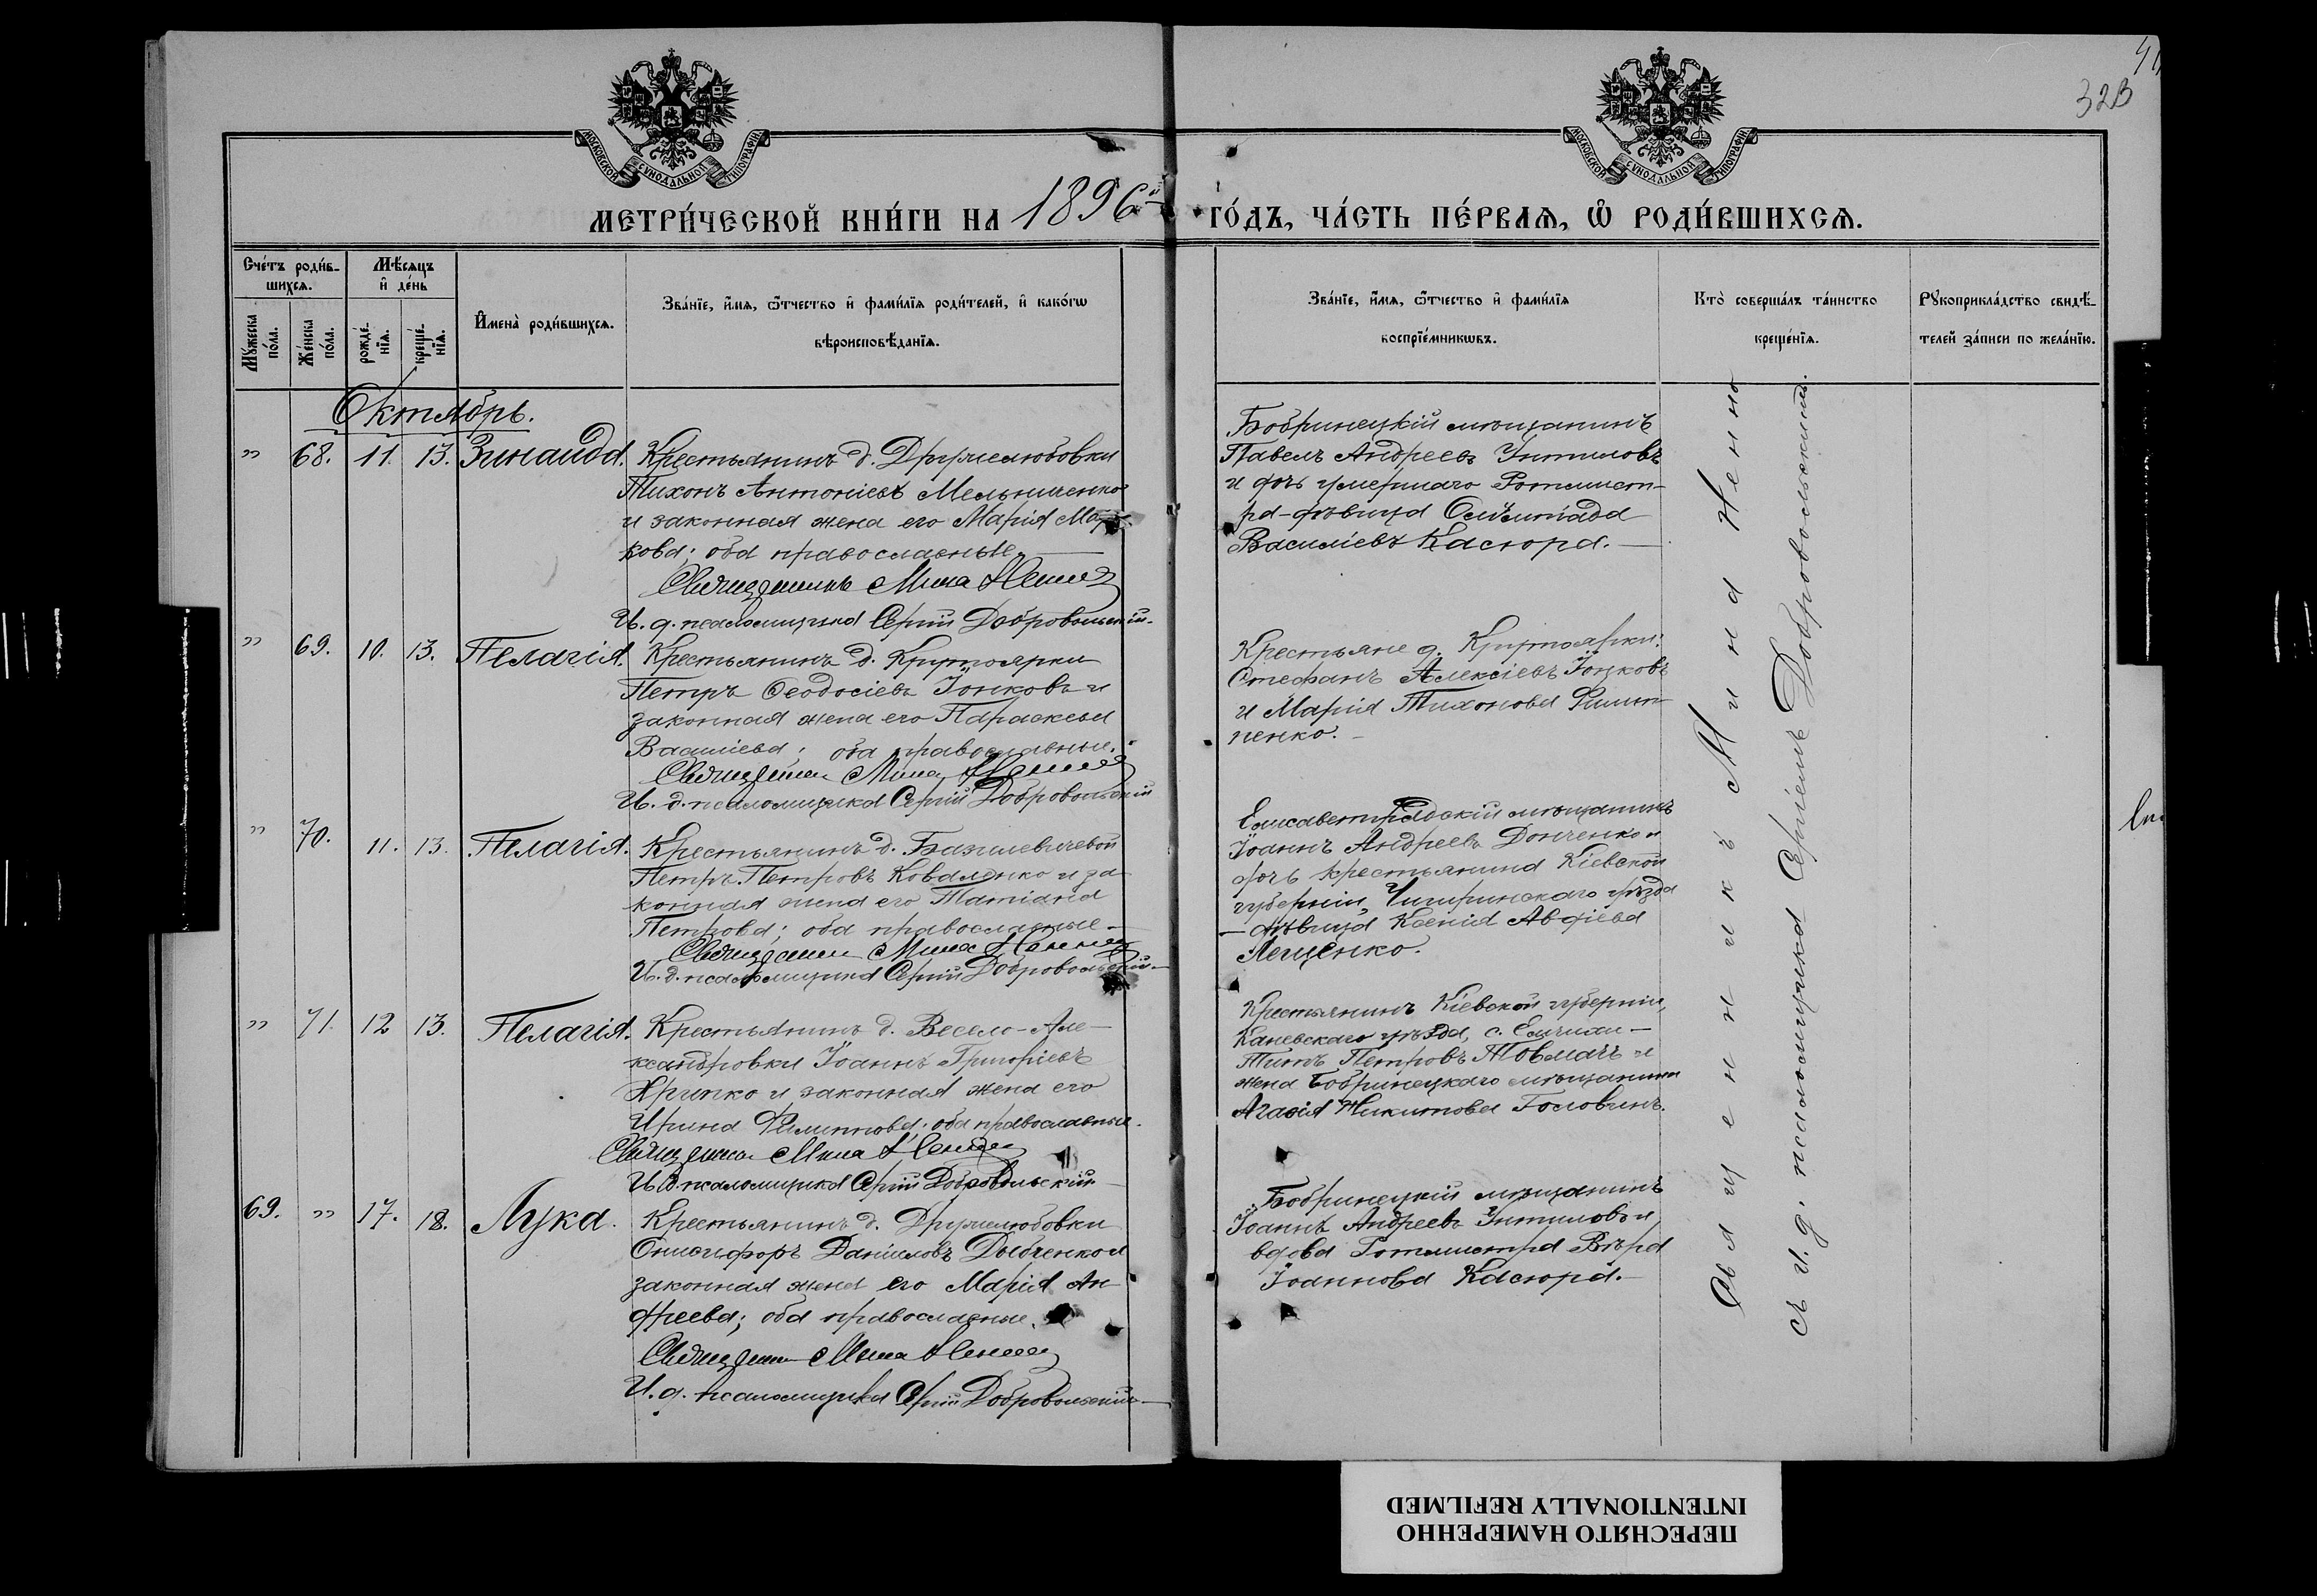 323
МОСКОВСКОЙ СѴНОДАЛЬНОЙ ТИПОГРАФІИ
МОСКОВСКОЙ СѴНОДАЛЬНОЙ ТИПОГРАФІИ
МЕТРИ́ЧЕСКОЙ КНИ́ГИ НА 1896й ГО́ДЪ, ЧА́СТЬ ПЕ́РВАѦ, Ѡ҆ РОДИ́ВШИХСѦ.
Сче́тъ роди́в-
шихсѧ.
Мꙋ́жеска по́ла.
Же́нска по́ла.
Мѣ́сѧцъ
и҆ де́нь
рожде́-
нїѧ.
креще́-
нїѧ.
И҆мена̀ роди́вшихсѧ.
Зва́нїе, и҆́мѧ, ѻ҆́тчество и҆ фами́лїѧ роди́телей, и҆ како́гѡ
вѣроисповѣ́данїѧ.
Зва́нїе, и҆́мѧ, ѻ҆́тчество и҆ фами́лїѧ
воспрїе́мникѡвъ.
Кто̀ соверша́лъ та́инство
креще́нїѧ.
Рꙋкоприкла́дство свидѣ́-
телей за́писи по жела́нїю.
Октябрь.
" 68. 11. 13. Зинаида.
Крестьянинъ д. Дружелюбовки
Тихонъ Антоніевъ Мельниченко
и законная жена его Марія Мар-
кова; оба православные. —
Священникъ Мина
И. д. псаломщика Сергій Добровольскій.
Бобринецкій мѣщанинъ
Павелъ Андреевъ Унтиловъ
и дочь умершаго Ротмист-
ра - дѣвица Олимпіада
Василіевъ Касюра. —
" 69. 10. 13. Пелагія.
Крестьянинъ д. Крутоярки
Петръ Ѳеодосіевъ Іонковъ и
законная жена его Параскева
Василіева; оба православные.
Священникъ Мина
И. д. псаломщика Сергій Добровольскій
Крестьяне д. Крутоярки:
Стефанъ Алексіевъ Іонковъ
и Марія Тихонова Филип-
пенко. —
" 70. 11. 13. Пелагія.
Крестьянинъ д. Базилевичевой
Петръ Петровъ Коваленко и за-
конная жена его Татіана
Петрова; оба православные —
Священникъ Мина
И. д. псаломщика Сергій Добровольскій —
Елисаветградскій мѣщанинъ
Іоаннъ Андреевъ Донченко и
дочь крестьянина Кіевской
губерніи, Чигиринскаго уѣзда
— дѣвица Ксенія Авдіева
Лещенко.
" 71. 12 13. Пелагія.
Крестьянинъ д. Весело-Але-
ксандровки Іоаннъ Григоріевъ
Хрипко и законная жена его
Ирина Филиппова; оба православные.
Священникъ Мина
И. д. псаломщика Сергій Добровольскій
Крестьянинъ Кіевской губерніи,
Каневскаго уѣзда, с.
Титъ Петровъ Товмачъ и
жена Бобринецкаго мѣщанина
Агаѳія Никитова Головинъ.
69. " 17. 18. Лука.
Крестьянинъ д. Дружелюбовки
Онисифоръ Даніиловъ Дибченко и
законная жена его Марія Ан-
дреева; оба православные.
Священникъ Мина
И. д. псаломщика Сергій Добровольскій —
Бобринецкій мѣщанинъ
Іоаннъ Андреевъ Унтиловъ и
вдова Ротмистра Вѣра
Іоаннова Касюра. —
Священникъ Мина
съ и. д. псаломщика Сергіемъ Добровольскимъ.
ПЕРЕСНЯТО НАМЕРЕННО
INTENTIONALLY REFILMED